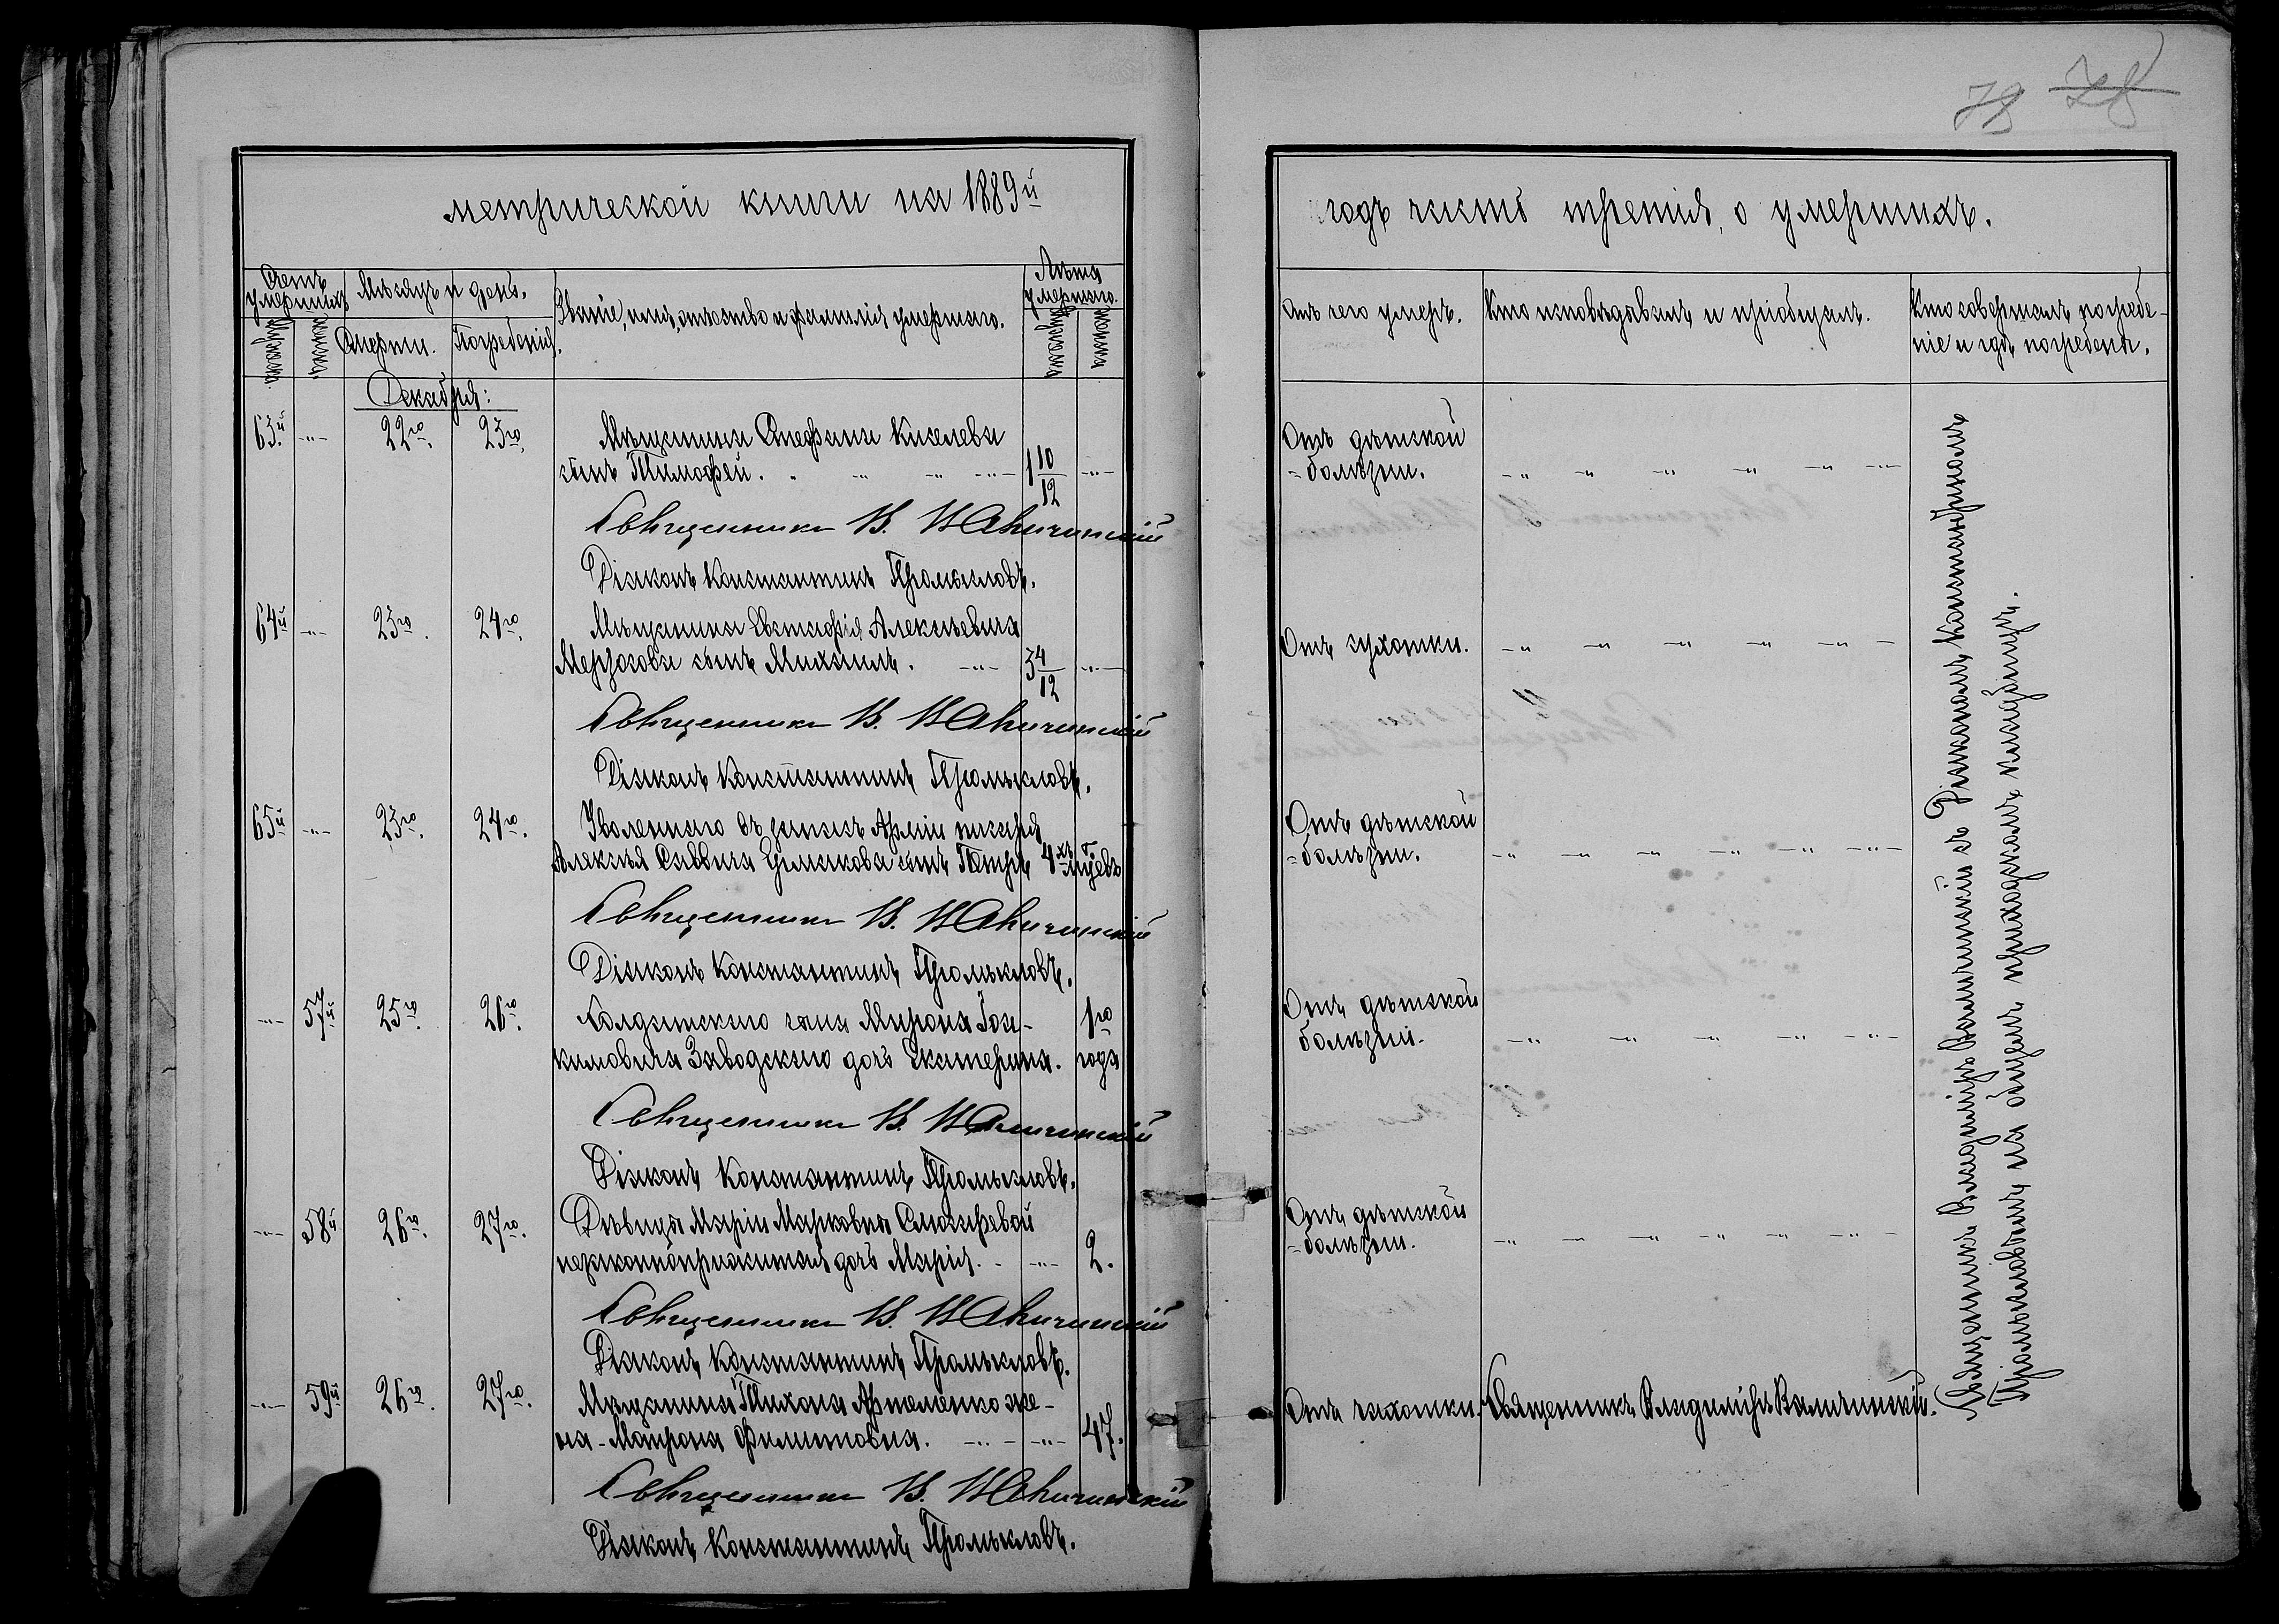 метрической книги на 1889й
Счетъ умершихъ
Мѣсяцъ и день.
Званіе, имя, отчество и фамилія умершаго.
Лѣта умершаго.
Мужеска.
женска.
Смерти.
Погребенія.
мужеска
женска
Декабря:
63й. -"- 22го. 23го.
Мѣщанина Стефана Киселева
сынъ Тимофей. 1 10/12 -"-
Священникъ В.
Діаконъ Константинъ Промысловъ.
64й -"- 23го. 24го.
Мѣщанина Евстафія Алексѣевича
сынъ Михаилъ. -"- 3 4/12 -"-
Священникъ В.
Діаконъ Константинъ Промысловъ.
65й -"- 23го. 24го.
Уволеннаго въ запасъ Арміи писаря
Алексѣя Саввича сынъ Петръ 4хъ мцевъ
Священникъ В.
Діаконъ Константинъ Промысловъ.
-"- 57й 25го. 26го.
Солдатскаго сына Мирона Іоа-
кимовича Заводскаго дочь Екатерина. 1го года
Священникъ В.
Діаконъ Константинъ Промысловъ.
-"- 58й 26го. 27го.
Дѣвицы Маріи Марковны Слюсаревой
незаконноприжитая дочь Марія. -"- 2.
Священникъ В.
Діаконъ Константинъ Промысловъ.
-"- 59й 26го. 27го.
Мѣщанина Тихона Артеменко же-
на - Матрона Филиповна. -"- -"- 47.
Священникъ В.
Діаконъ Константинъ Промысловъ.
78
годъ часть третія, о умершихъ.
Отъ чего умеръ.
Кто исповѣдавалъ и пріобщалъ.
Кто совершалъ погребе-
ніе и гдѣ погребены.
Отъ дѣтской
болѣзни.
Отъ сухотки.
Отъ дѣтской
болѣзни.
Отъ дѣтской
болѣзни.
Отъ дѣтской
болѣзни.
Отъ чахотки. Священникъ Владиміръ
Священникъ Владиміръ съ Діакономъ Константиномъ
Промысловымъ на общемъ приходскомъ кладбищѣ.